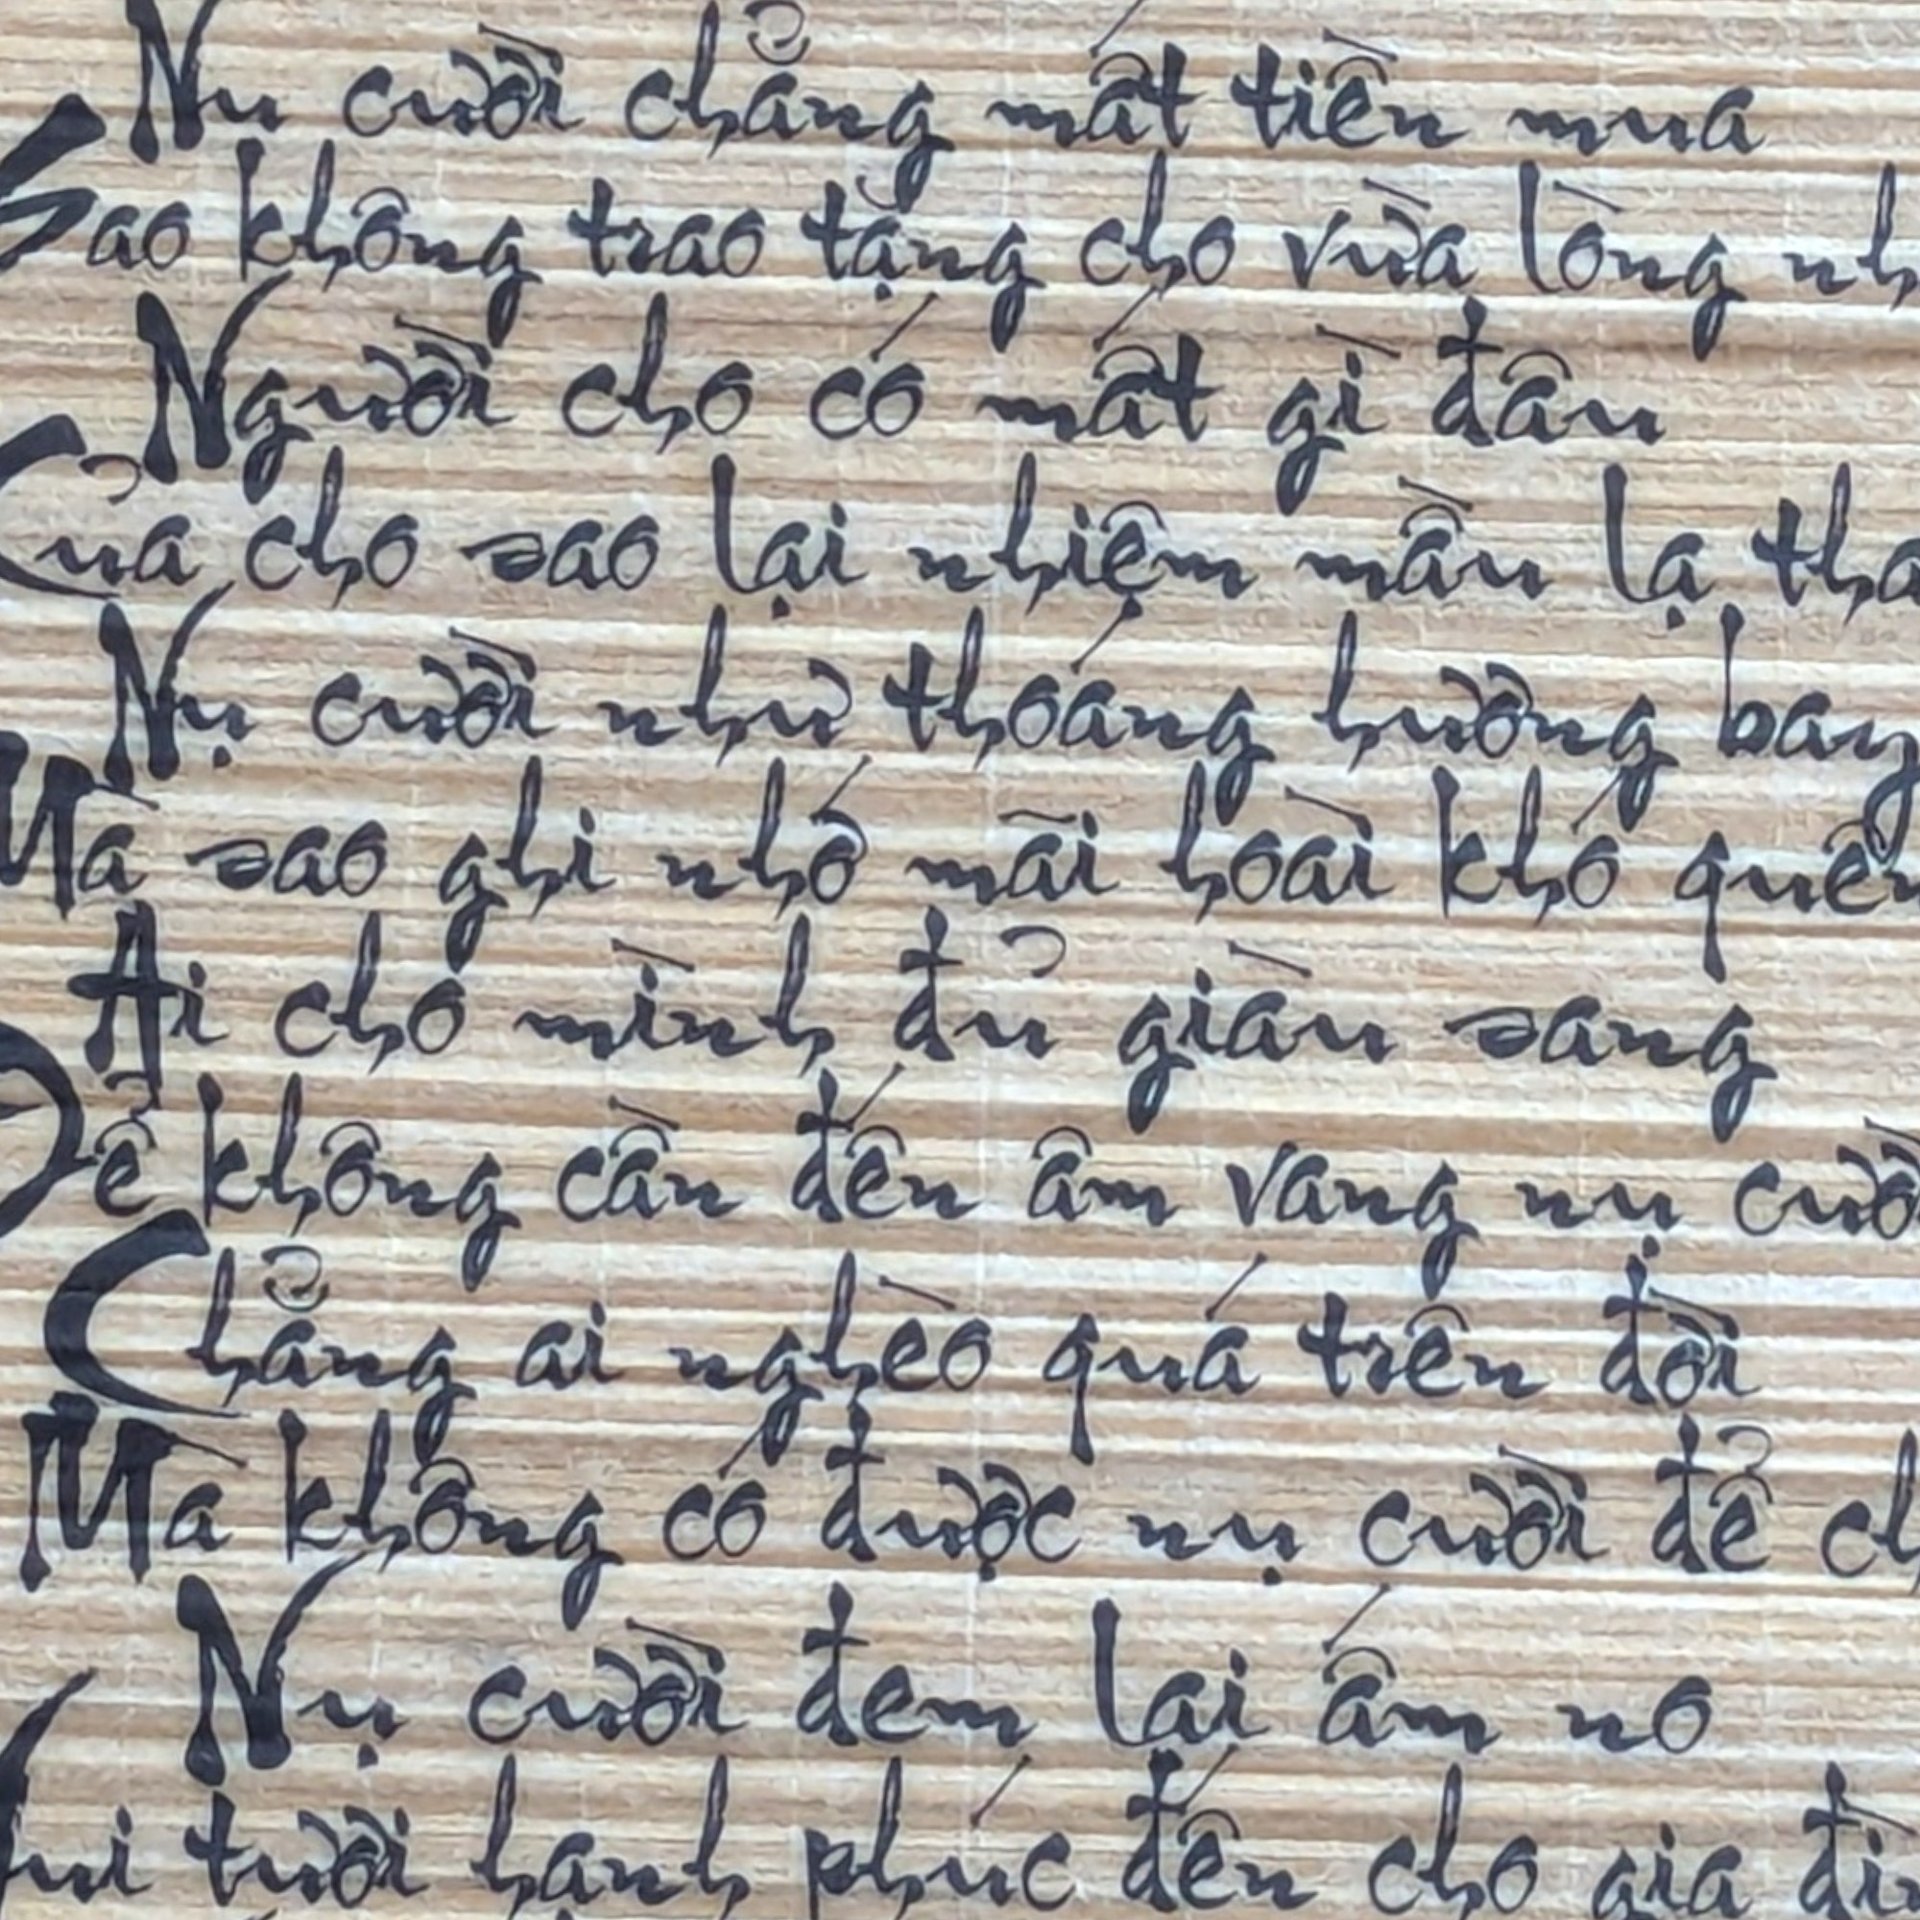 Nụ cười chẳng mất tiền mua
Sao không trao tặng cho vừa lòng nh
Người cho có mất gì đâu
Của cho sao lại nhiệm mầu lạ tha
Nụ cười như thoáng hương bay
Mà sao ghi nhớ mãi hoài khó quên
Ai cho mình đủ giàu sang
Để không cần đến âm vang nụ cườ
Chẳng ai nghèo quá trên đời
Mà không có được nụ cười để ch
Nụ cười đem lại ấm no
Vui tươi hạnh phúc đến cho gia đìn